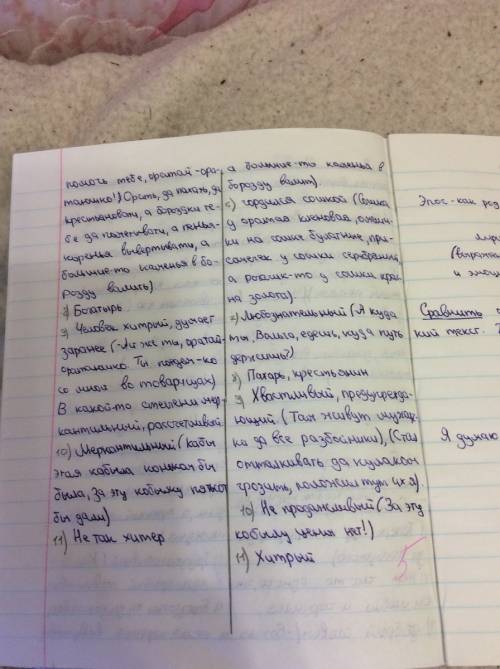 помочь тебе, оратай-ора-
таюшко!) Орать, да пахать, да
крестьяновати, а бороздки те-
бе да пометывати, а пенья-
коренья вывертывати, а
большие-то каменья в бо-
розду валить)
8) Богатырь
9) Человек хитрый, думает
заранее (-Ай же ты, оратай-
оратаюшко. Ты поедем-ко
со мной во товарищах)
В какой-то степени мер-
кантильный, рассчетливый.
10) Меркантильный (кабы
этая кобыла коньком бы
была, За эту кобылку
бы дали)
11) Не так хитер
а большие-то каменья в
борозду валит).
6) гордился сошкой (Сошка
у оратая кленовая, омеши-
ки на сошке булатные, при-
сошечек у сошки серебряный,
а рогачик-то у сошки крас-
на золота).
7) Любознательный (А куда
ты, Вольга, едешь, куда путь
держишь?)
8) Пахарь, крестьянин
9) Хвастливый, предупрежда-
ющий (Там живут мужич-
ки да все разбойники), (Стал
отталкивать да кулаком
грозить, положил тут их я).
10) Не продажливый (За эту
кобылу цены нет!)
11) Хитрый
5
Эпос - как род
и эмоц
Сравнить
кий текст.
Я думаю